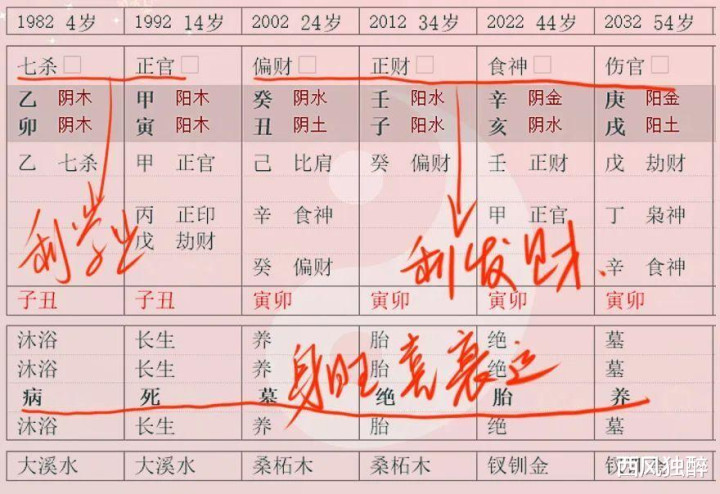 1982 4岁 1992 14岁 2002 24岁 2012 34岁 2022 44岁 2032 54岁
七杀□ 正官□ 偏财□ 正财□ 食神□ 伤官□
乙 阴木 甲 阳木 癸 阴水 壬 阳水 辛 阴金 庚 阳金
卯 阴木 寅 阳木 丑 阴土 子 阳水 亥 阴水 戌 阳土
乙 七杀 甲 正官 己 比肩 癸 偏财 壬 正财 戊 劫财
丙 正印 辛 食神 甲 正官 丁 枭神
戊 劫财 癸 偏财 辛 食神
利学业
利发财
子丑 子丑 寅卯 寅卯 寅卯 寅卯
沐浴 长生 养 胎 绝 墓
沐浴 长生 养 胎 绝 墓
病 死 墓 绝 胎 养
沐浴 长生 养 胎 绝 墓
身旺喜衰运
大溪水 大溪水 桑柘木 桑柘木 钗钏金
西风独醉